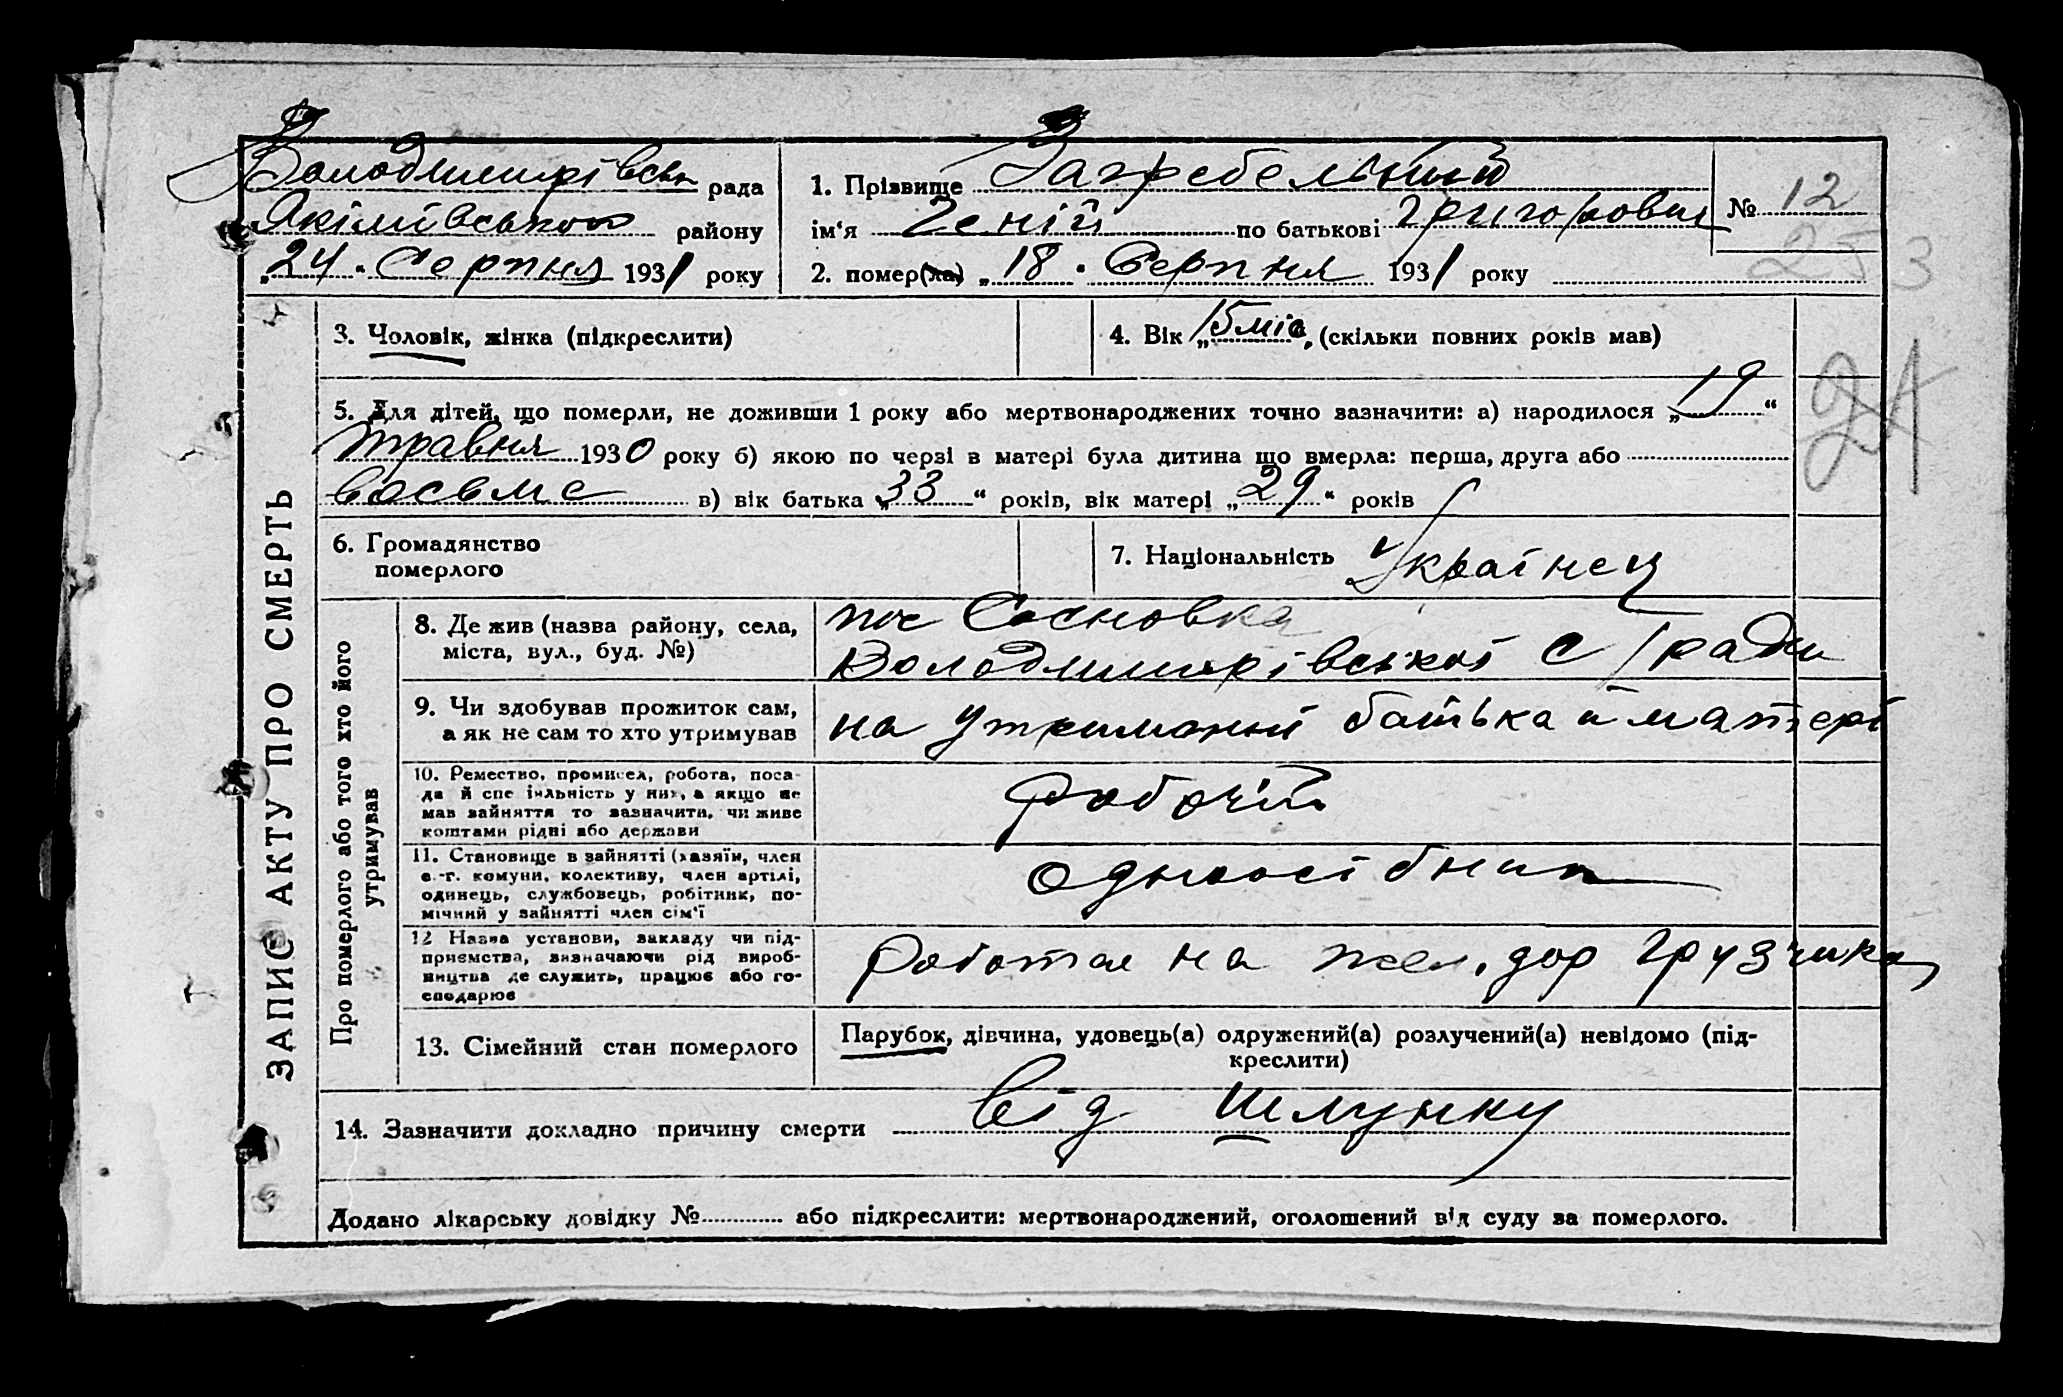 Володимирівська рада
Якимівського району
„24“ Серпня 1931 року
1. Прізвище Загребельний
ім‘я Геній по батькові Григорович
№ 12
253
2. помер(ла) „18“ Серпня 1931 року
ЗАПИС АКТУ ПРО СМЕРТЬ
3. Чоловік, жінка (підкреслити)
4. Вік „15 міс“, (скільки повних років мав)
5. Для дітей, що померли, не доживши 1 року або мертвонароджених точно зазначити: а) народилося „19“
травня 1930 року б) якою по черзі в матері була дитина що вмерла: перша, друга або
восьме в) вік батька „33“ років, вік матері „29“ років
6. Громадянство
померлого
7. Національність Українец
Про померлого або того хто його
утримував
8. Де жив (назва району, села,
міста, вул., буд. №)
пос Сосновка
Володимирівської с/ради
9. Чи здобував прожиток сам,
а як не сам то хто утримував
на утриманні батька й матері
10. Ремество, промисел, робота, поса-
да й спеціяльність у них, а якщо не
мав зайняття то зазначити, чи живе
коштами рідні або держави
робочій
11. Становище в зайнятті (хазяїн, член
с.-г. комуни, колективу, член артілі,
одинець, службовець, робітник, по-
мічний у зайнятті член сім‘ї
одноосібник
12 Назва установи, закладу чи під-
приємства, визначаючи рід вироб-
ництва де служить, працює або го-
сподарює
на жел. дор грузчика
13. Сімейний стан померлого
Парубок, дівчина, удовець(а) одружений(а) розлучений(а) невідомо (під-
креслити)
14. Зазначити докладно причину смерти від шлунку
Додано лікарську довідку № або підкреслити: мертвонароджений, оголошений від суду за померлого.